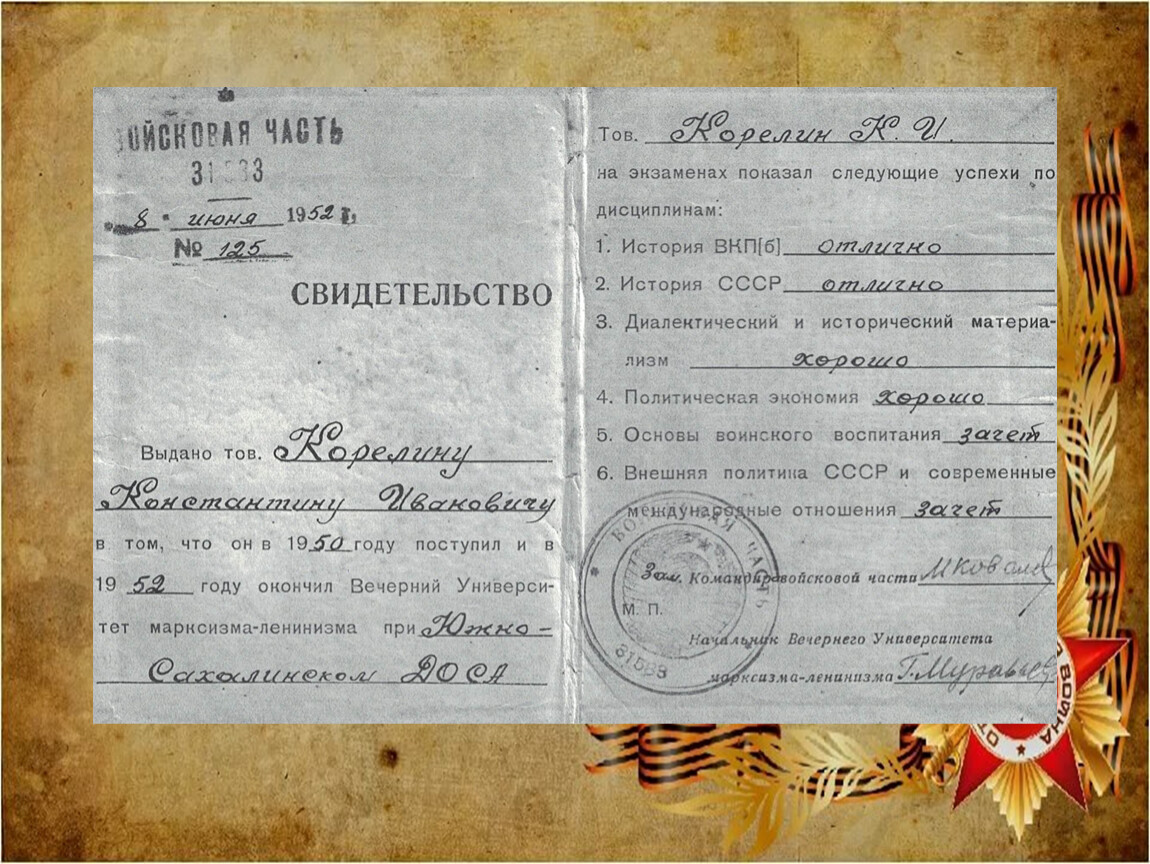 ВОЙСКОВАЯ ЧАСТЬ
"8" июня 1952 г.
№ 125
СВИДЕТЕЛЬСТВО
Выдано тов. Корелину
Константину Ивановичу
в том, что он в 1950 году поступил и в
1952 году окончил Вечерний Универси-
тет марксизма-ленинизма при Южно-
Сахалинском ДОСА
Тов. Корелин К. И.
на экзаменах показал следующие успехи по
дисциплинам:
1. История ВКП[б] отлично
2. История СССР отлично
3. Диалектический и исторический материа-
лизм хорошо
4. Политическая экономия хорошо
5. Основы воинского воспитания зачет
6. Внешняя политика СССР и современные
международные отношения зачет
Зам. Командира войсковой части
М. П.
Начальник Вечернего Университета
марксизма-ленинизма Г. Муравьев
ВОЙСКОВАЯ ЧАСТЬ
ВОЙНА